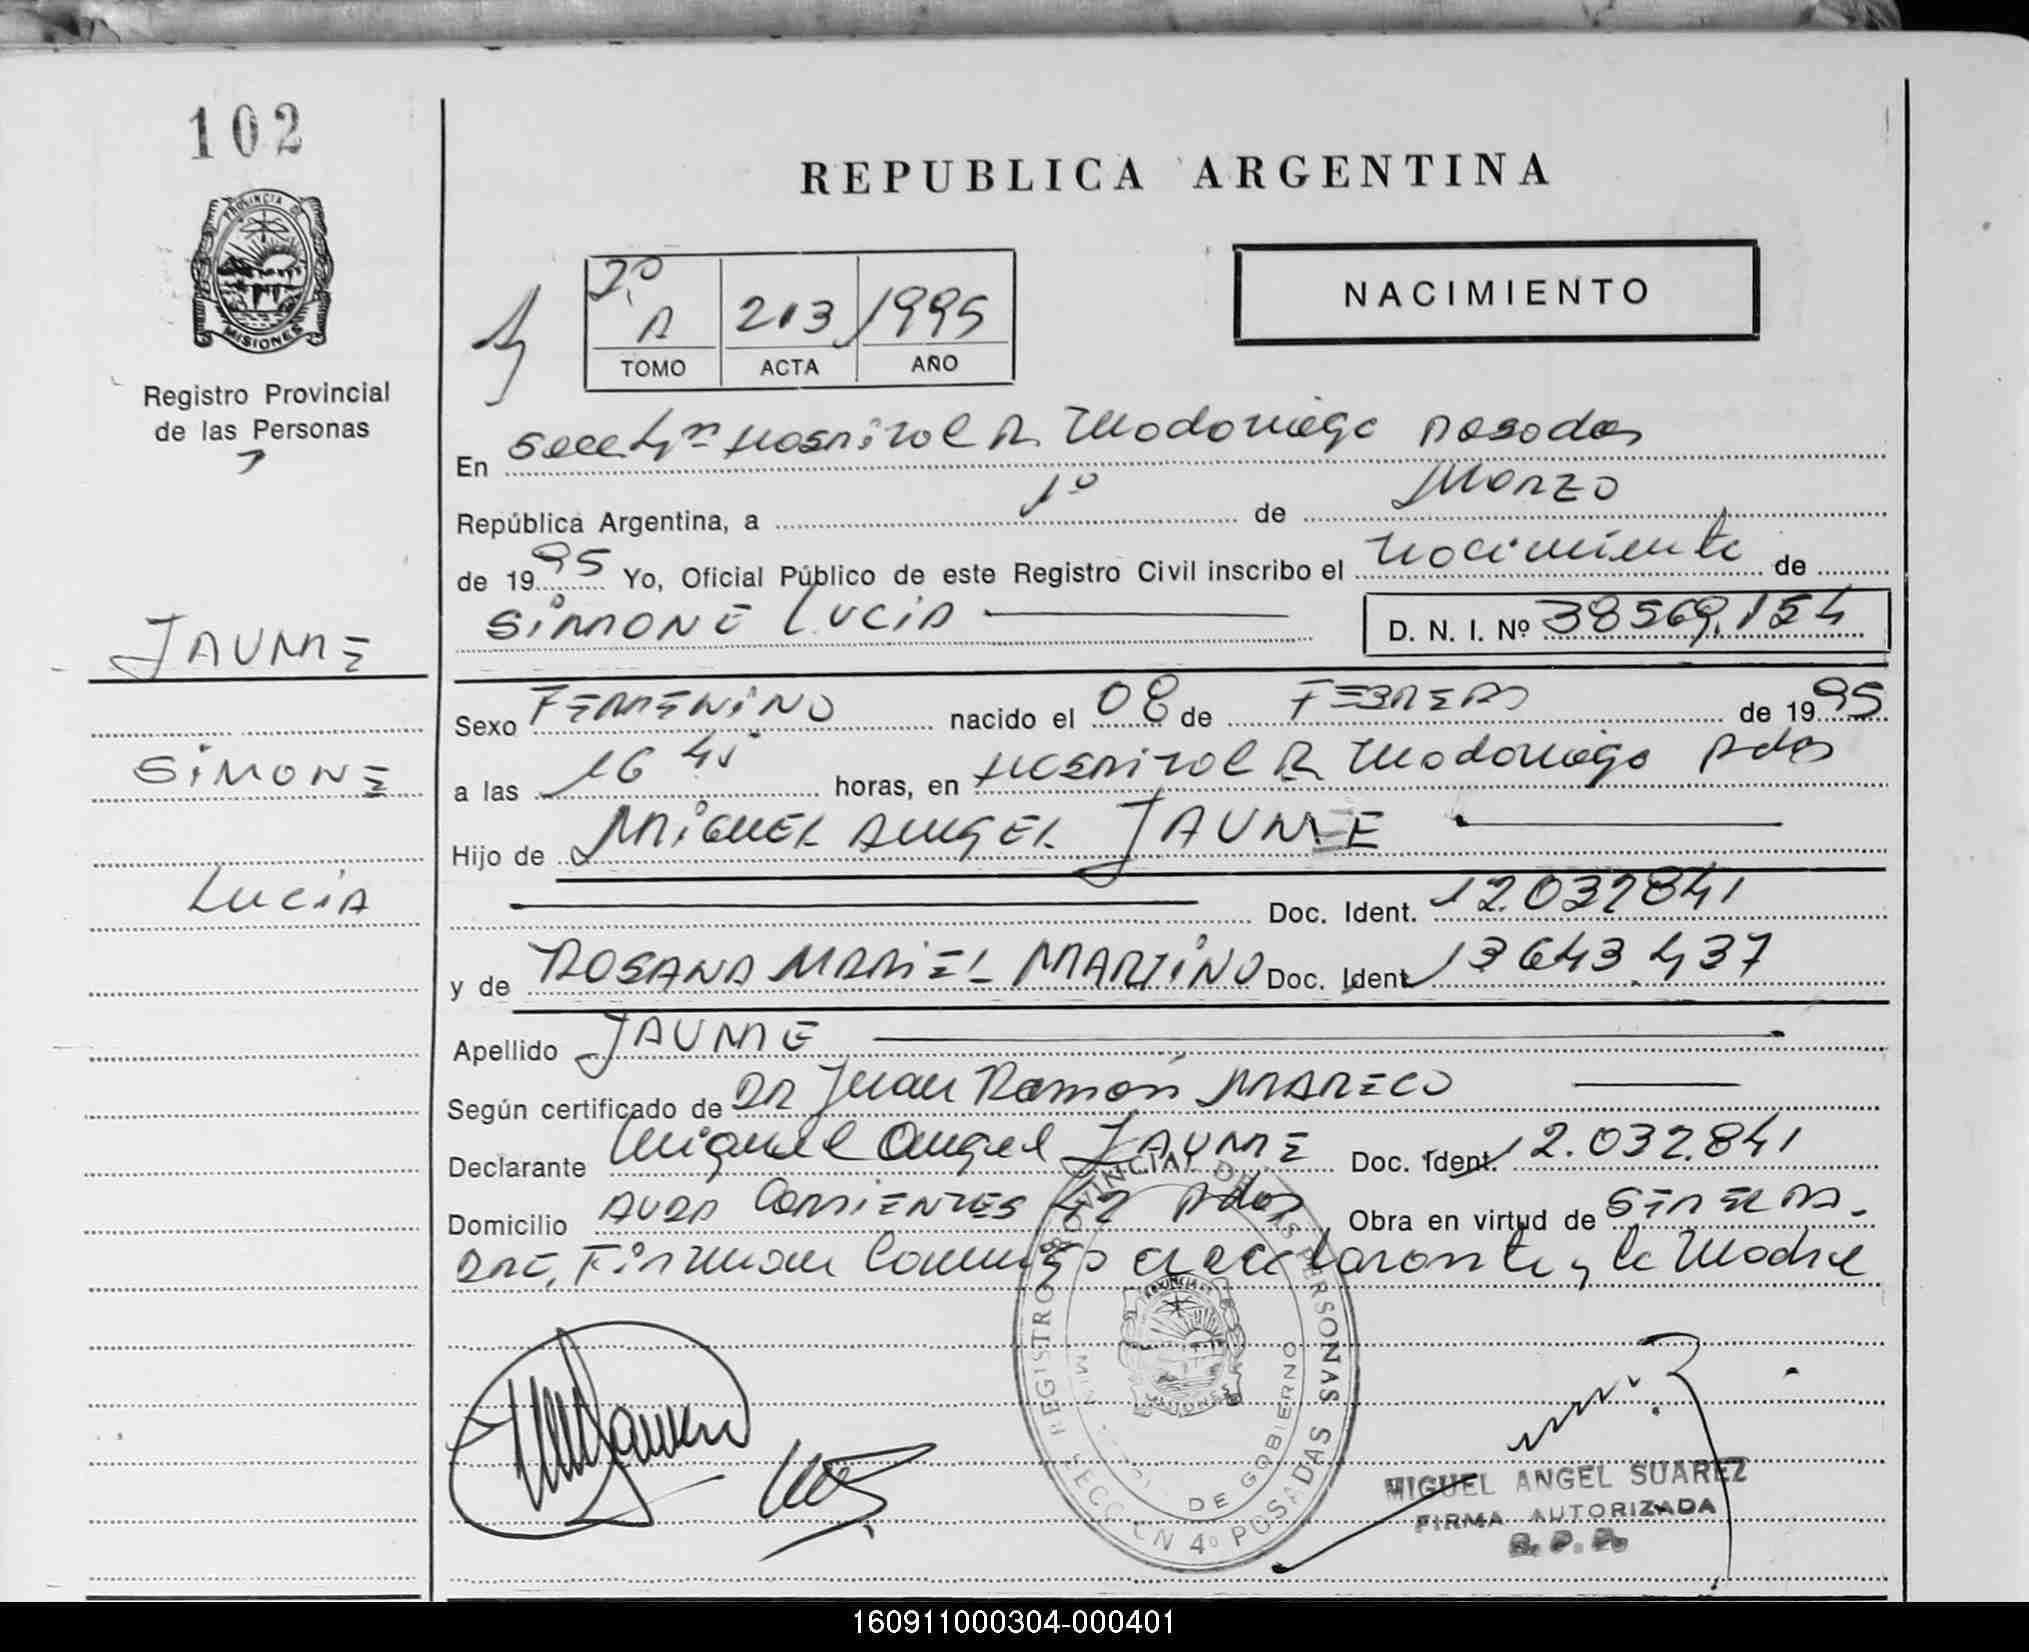 102
REPUBLICA ARGENTINA
PROVINCIA DE
MISIONES
Registro Provincial
de las Personas
2º
A 213 1995
TOMO ACTA AÑO
NACIMIENTO
En Secc 4ta Hospital R. Madariaga Posadas
República Argentina, a 1º de Marzo
de 1995 Yo, Oficial Público de este Registro Civil inscribo el Nacimiento de
SIMONE LUCIA D. N. I. Nº 38569.154
JAUME
SIMONE
LUCIA
Sexo FEMENINO nacido el 08 de FEBRERO de 1995
a las 16 45 horas, en HOSPITAL R. Madariaga Pdas
Hijo de MIGUEL ANGEL JAUME
Doc. Ident. 12.032841
y de ROSANA MARIEL MARTINO Doc. Ident 13643.437
Apellido JAUME
Según certificado de DR Juan Ramón MARECO
Declarante Miguel Angel JAUME Doc. Ident. 12.032.841
Domicilio AVDA CORRIENTES 42 Pdas Obra en virtud de
Firman conmigo el declarante y la Madre
REGISTRO PROVINCIAL DE LAS PERSONAS
SECCION 4º POSADAS
DE GOBIERNO
PROVINCIA DE
MISIONES
MIGUEL ANGEL SUAREZ
FIRMA AUTORIZADA
R. P. P.
160911000304-000401